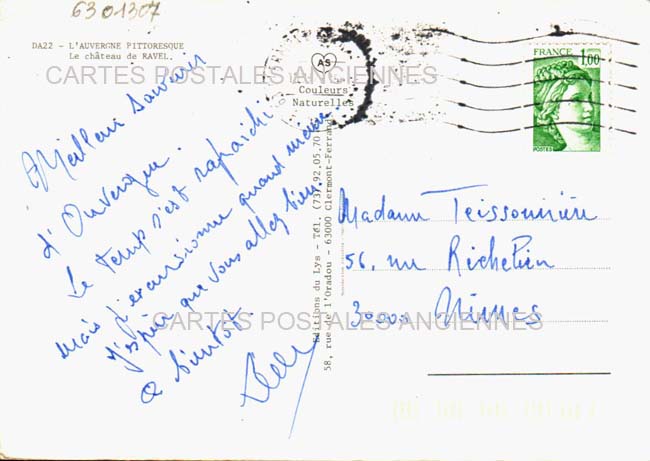 6301307
DA22 - L'AUVERGNE PITTORESQUE
Le château de RAVEL.
CARTES POSTALES ANCIENNES
AS
Couleurs
Naturelles
FRANCE 1,00
POSTES
Meilleurs Souvenirs
d'Auvergne.
Le temps s'est rafraichi
mais j'excursionne quand même.
J'espère que vous allez bien.
A bientôt.
Editions du Lys - Tél. (73) 92.05.70
58, rue de l'Oradou - 63000 Clermont-Ferrand
Madame Teissonnière
56, rue Richelieu
30000 Nîmes
CARTES POSTALES ANCIENNES